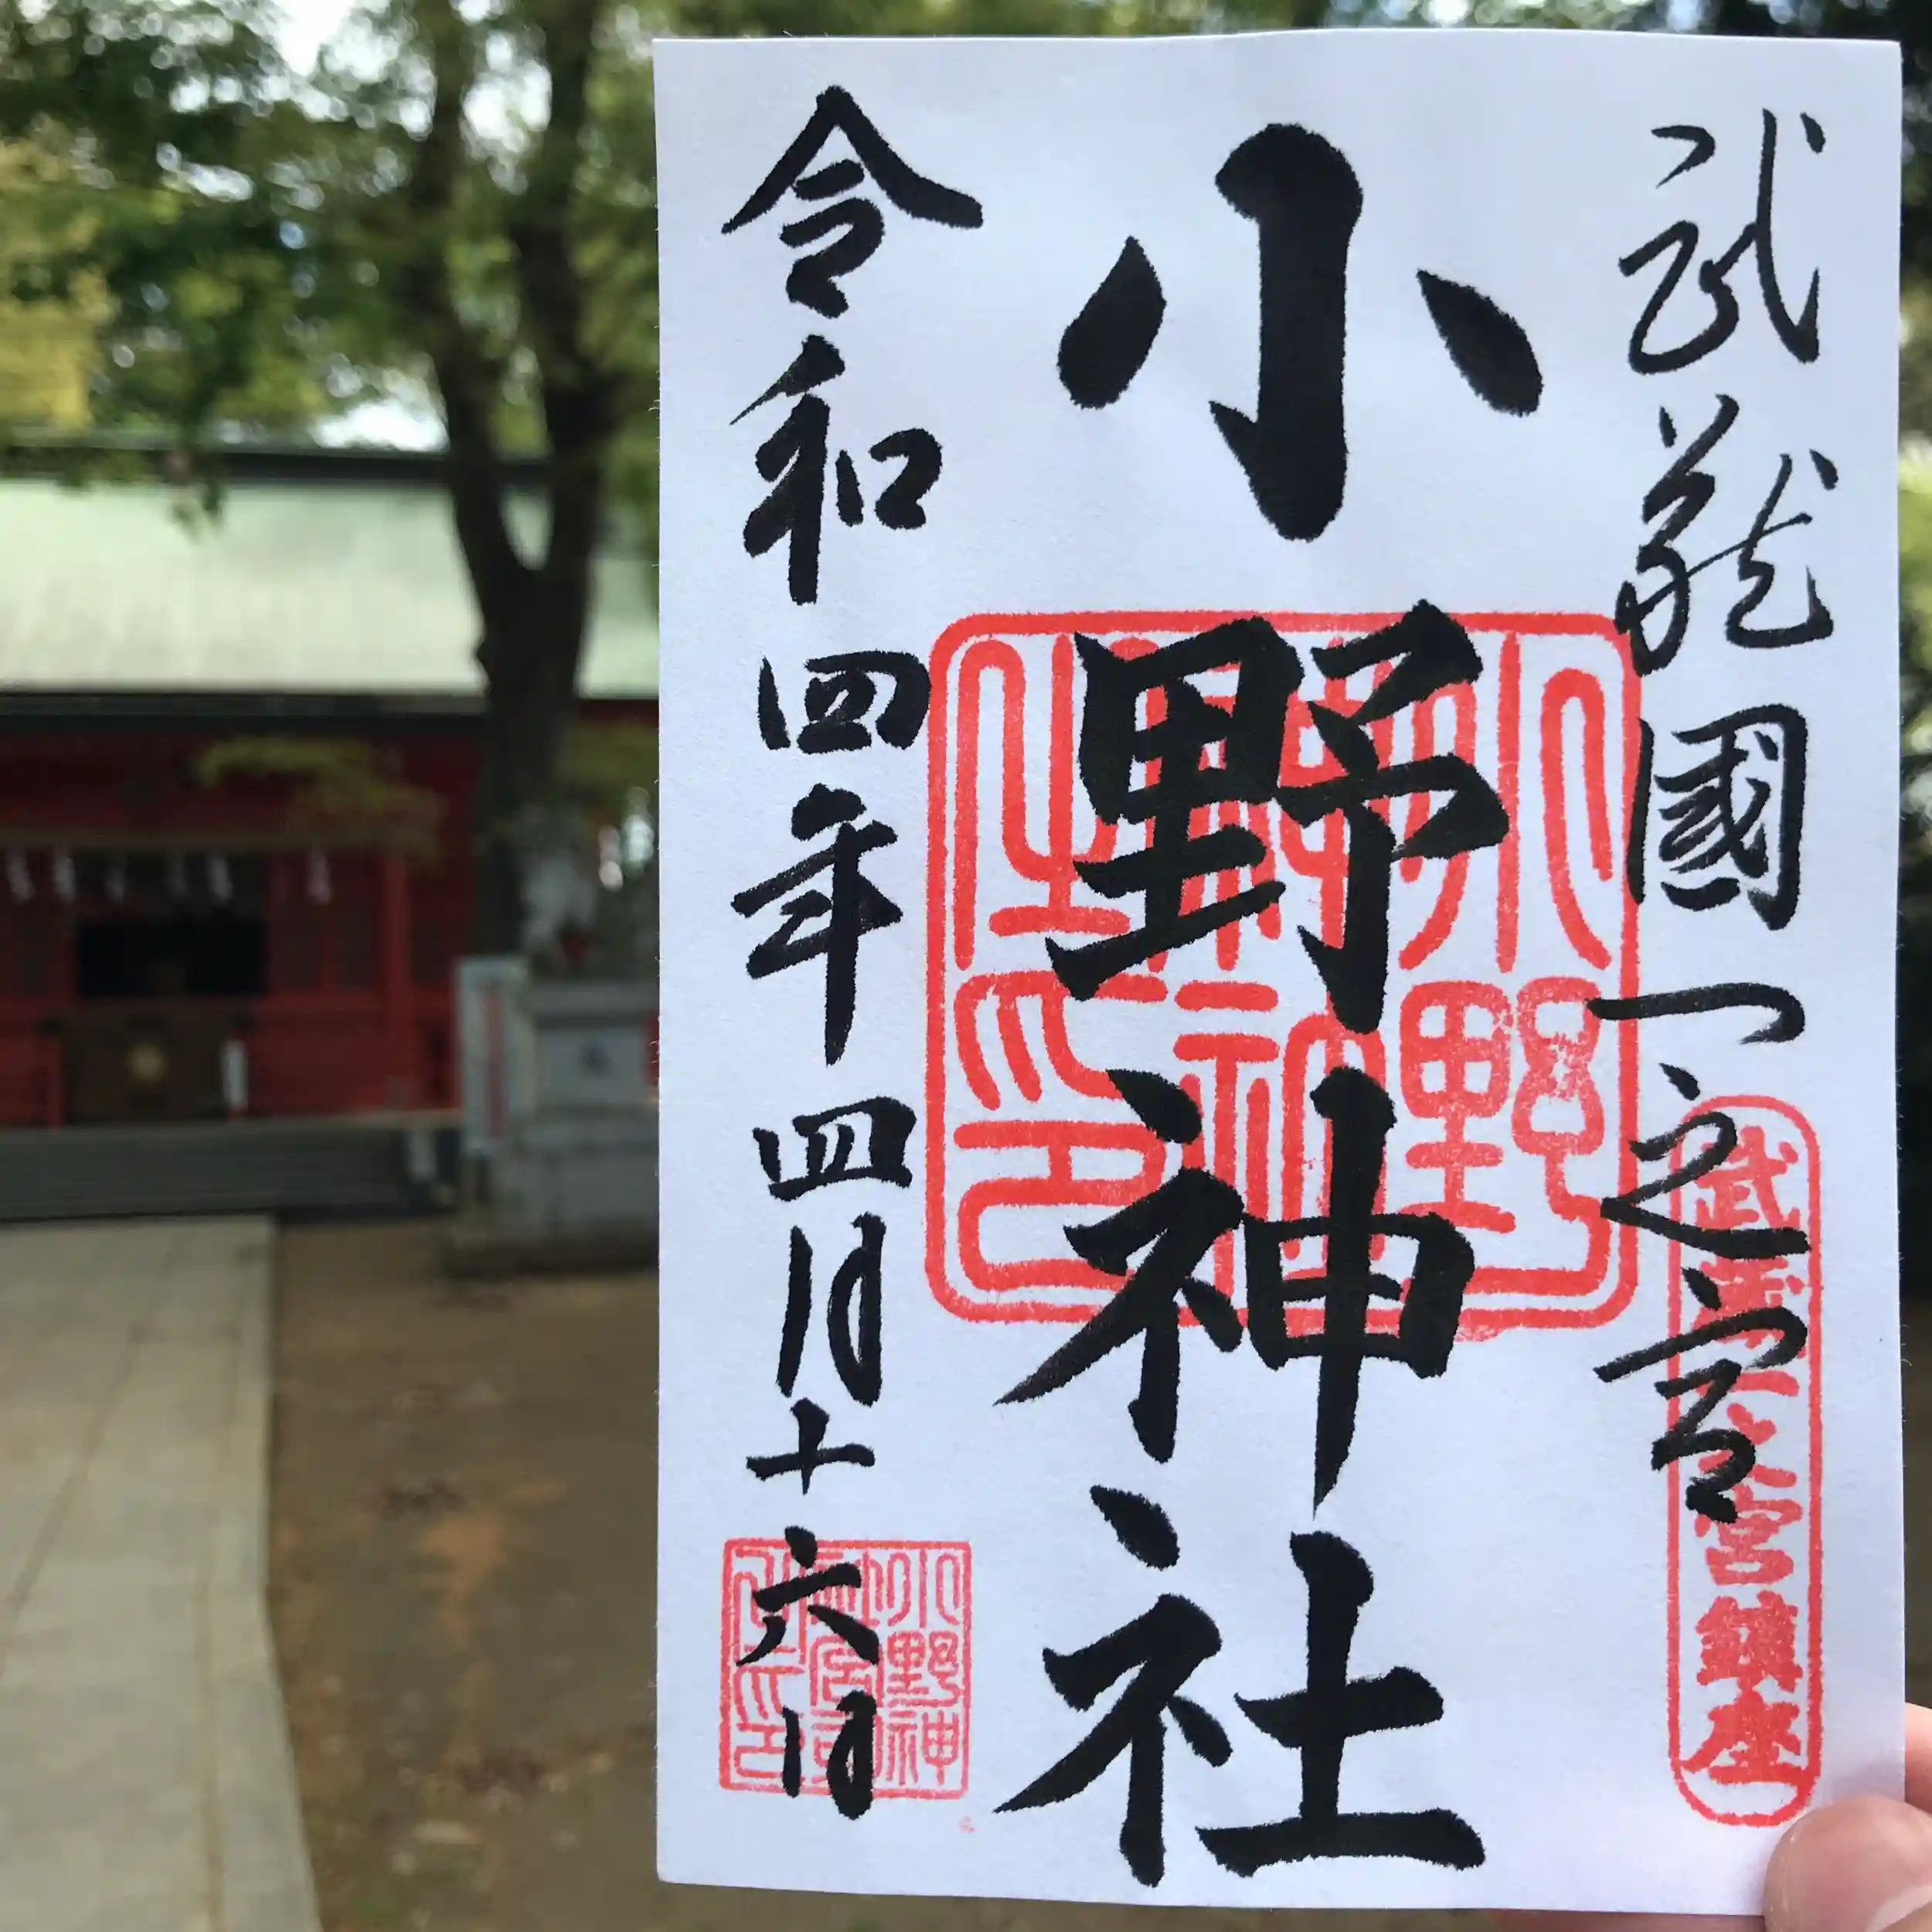 武蔵國一之宮
武蔵一之宮鎮座
小野神社
令和四年四月十六日
小野神社宮司之印